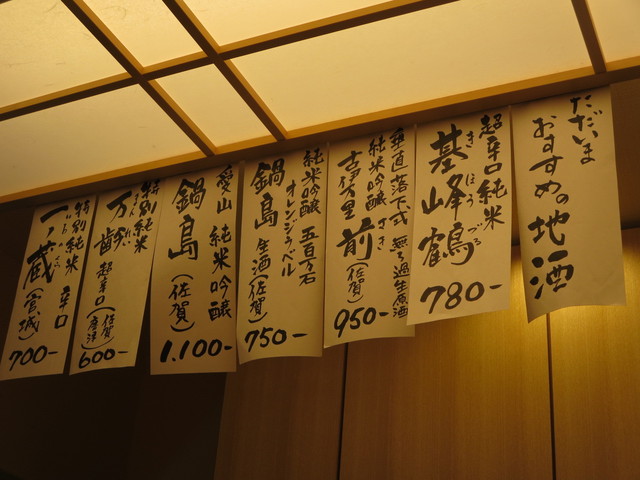 ただいま
おすすめの地酒
超辛口純米
基峰鶴
き ほう づる
780-
垂直落下式 無ろ過生原酒
純米吟醸
古伊万里 前
さき
(佐賀)
950-
純米吟醸 五百万石
オレンジラベル
鍋島 生酒(佐賀)
750-
愛山 純米吟醸
鍋島(佐賀)
1.100-
特別純米
万齢 超辛口(佐賀 唐津)
まん れい
600-
特別純米 辛口
一ノ蔵(宮城)
700-